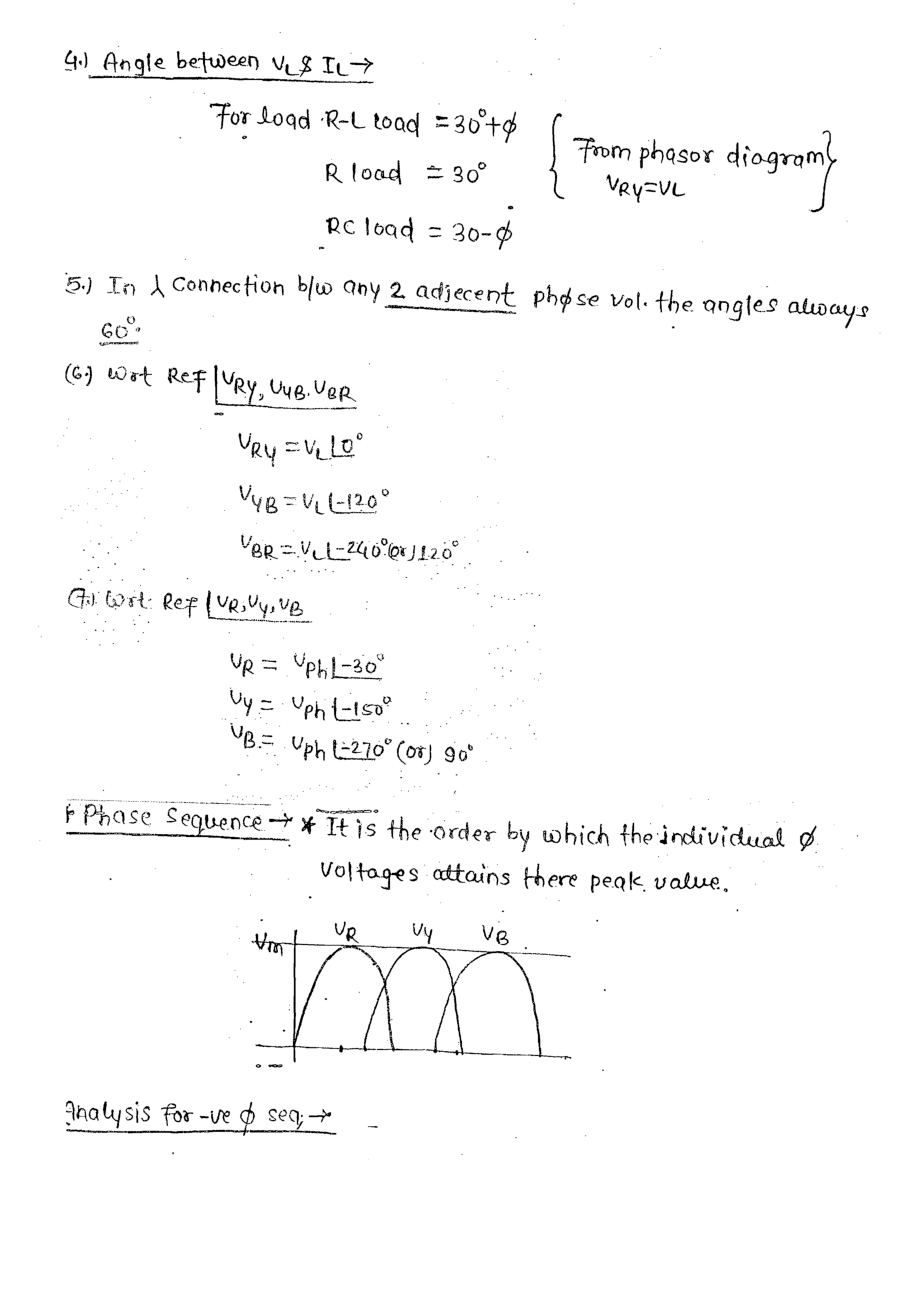 4.) Angle between VL & IL →
For load R-L load = 30°+ϕ { From phasor diagram}
R load = 30° VRY=VL
RC load = 30-ϕ
5.) In ⅄ Connection b/w any 2 adjecent phϕse vol. the angles always
60°.
(6.) Wrt Ref | VRY, VYB. VBR
VRY = VL∠0°
VYB = VL∠-120°
VBR = VL∠-240° (or) 120°
(7.) Wrt Ref | VR, VY, VB
VR = Vph∠-30°
VY = Vph∠-150°
VB = Vph∠-270° (or) 90°
* Phase Sequence → * It is the order by which the individual ϕ
Voltages attains there peak value.
Vm VR VY VB
Analysis for -ve ϕ seq; →